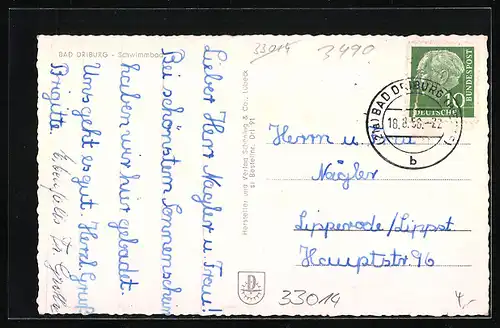 BAD DRIBURG - Schwimmbad
Lieber Herr Nagler u. Frau!
Bei schönstem Sonnenschein
haben wir hier gebadet.
Uns geht es gut. Herzl. Gruß
Brigitte
Hersteller und Verlag Schöning & Co., Lübeck
Bestellnr. Dri 91
33014
3490
DEUTSCHE BUNDESPOST
10
BAD DRIBURG
18.8.58.-22
b
Herrn u. Frau
Nägler
Lipperode/Lippst
Hauptstr. 96
33014
4,-